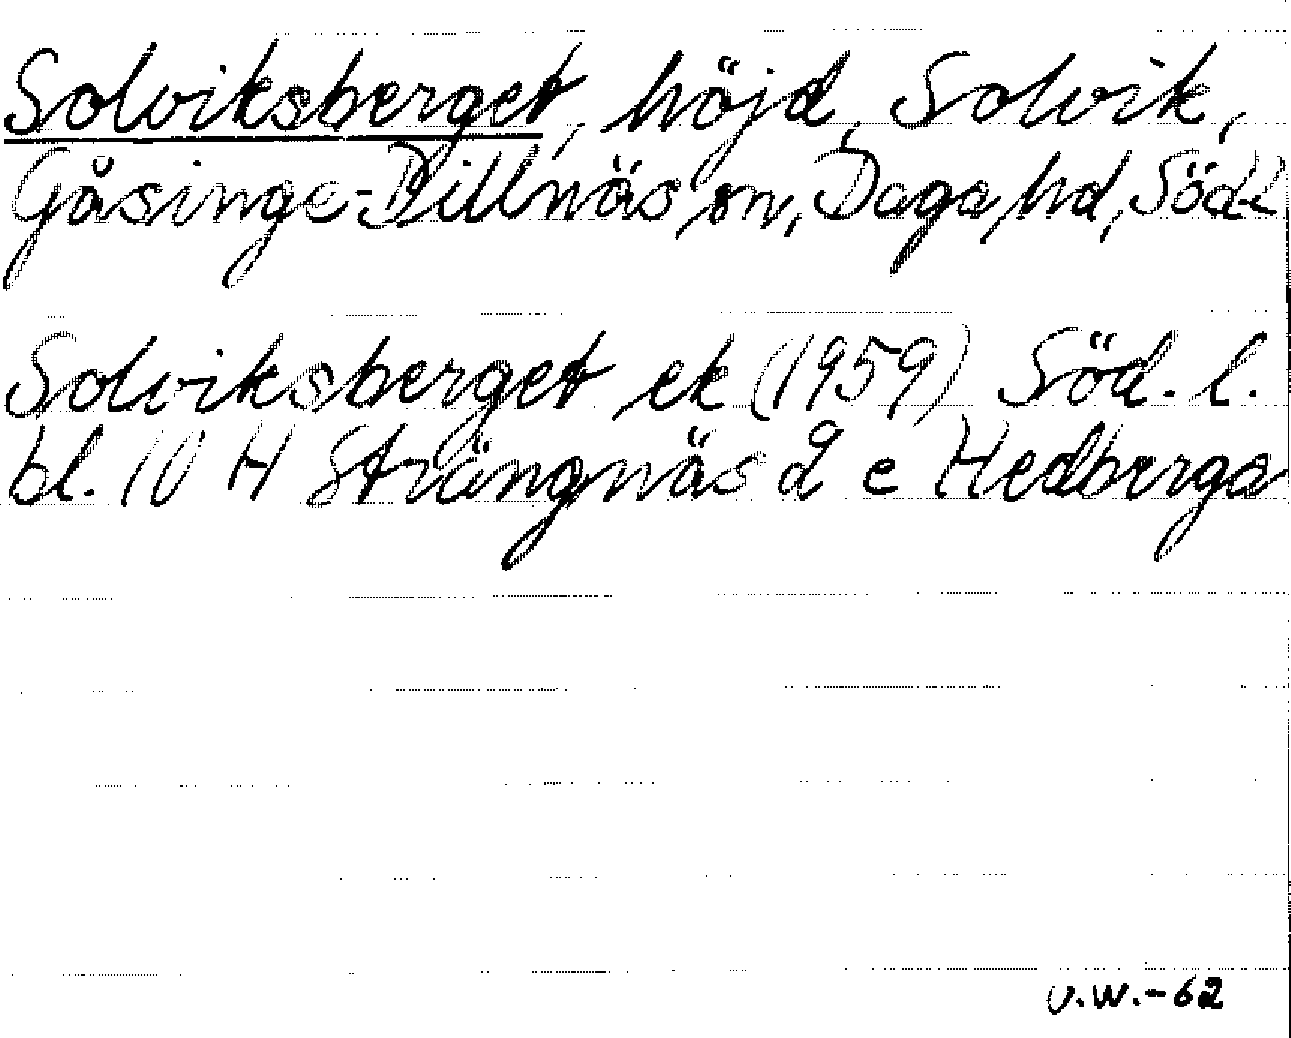 Solviksberget, höjd, Solvik,
Gåsinge-Dillnäs sn, Daga hd, Södl
Solviksberget ek (1959) Söd. l.
bl. 10 H Strängnäs 2 e Hedberga
U.W.-62